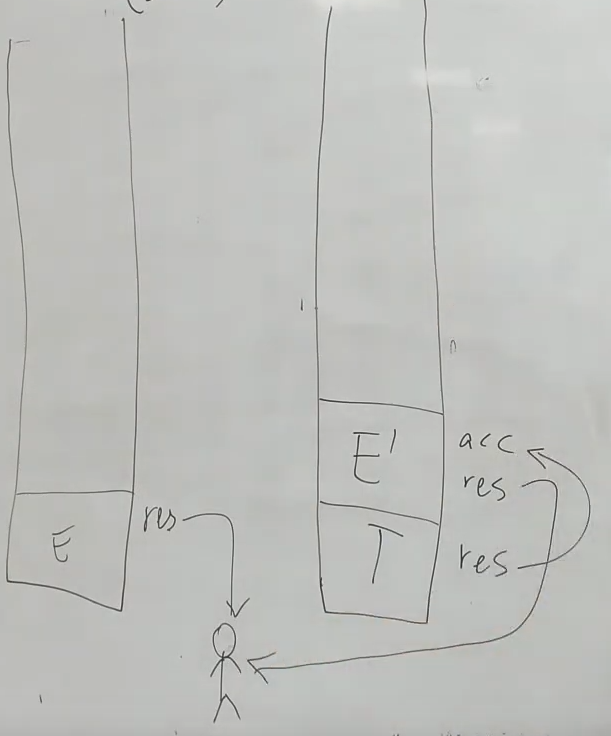 E res
E' acc
res
T res